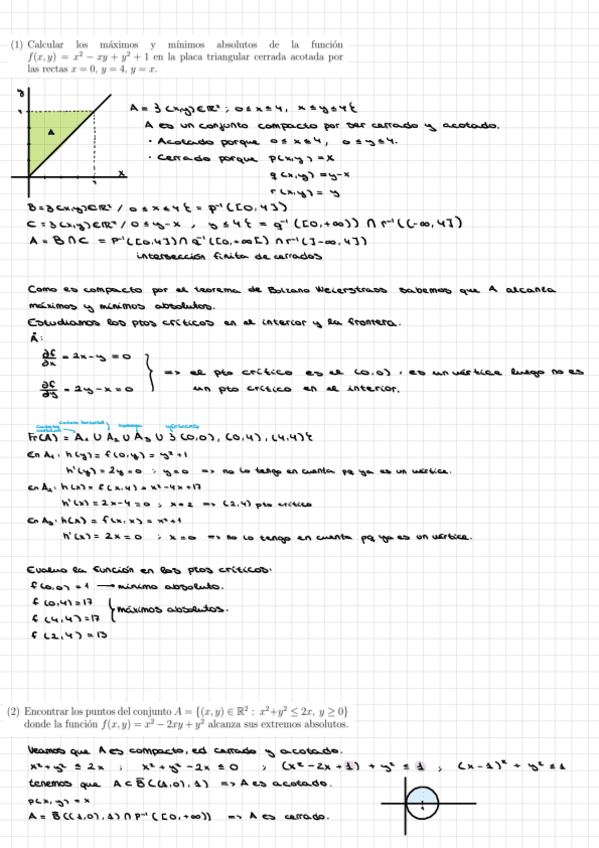 (1) Calcular los máximos y mínimos absolutos de la función
f(x, y) = x² − xy + y² + 1 en la placa triangular cerrada acotada por
las rectas x = 0, y = 4, y = x.
y
4
A
x
4
A = {(x,y)∈ℝ² ; 0≤x≤4, x≤y≤4}
A es un conjunto compacto por ser cerrado y acotado.
· Acotado porque 0≤x≤4, 0≤y≤4.
· Cerrado porque p(x,y) = x
q(x,y) = y-x
r(x,y) = y
B = {(x,y)∈ℝ² / 0≤x≤4} = p⁻¹([0,4])
C = {(x,y)∈ℝ² / 0≤y-x, y≤4} = q⁻¹([0,+∞)) ∩ r⁻¹((-∞,4])
A = B∩C = p⁻¹([0,4]) ∩ q⁻¹([0,+∞[) ∩ r⁻¹(]-∞,4])
intersección finita de cerrados
Como es compacto por el teorema de Bolzano Weierstrass sabemos que A alcanza
máximos y mínimos absolutos.
Estudiamos los ptos críticos en el interior y la frontera.
Å:
∂f/∂x = 2x-y = 0
=> el pto crítico es el (0,0), es un vértice luego no es
∂f/∂y = 2y-x = 0
un pto crítico en el interior.
vértices
Fr(A) = A₁ ∪ A₂ ∪ A₃ ∪ {(0,0), (0,4), (4,4)}
En A₁: h(y) = f(0,y) = y²+1
h'(y) = 2y = 0 ; y=0 => no lo tengo en cuenta pq ya es un vértice.
En A₂: h(x) = f(x,4) = x²-4x+17
h'(x) = 2x-4 = 0 ; x=2 => (2,4) pto crítico
En A₃: h(x) = f(x,x) = x²+1
h'(x) = 2x = 0 ; x=0 => no lo tengo en cuenta pq ya es un vértice.
Evaluo la función en los ptos críticos:
f(0,0) = 1 → mínimo absoluto.
f(0,4) = 17
máximos absolutos.
f(4,4) = 17
f(2,4) = 13
(2) Encontrar los puntos del conjunto A = {(x, y) ∈ ℝ² : x²+y² ≤ 2x, y ≥ 0}
donde la función f(x, y) = x² − 2xy + y² alcanza sus extremos absolutos.
Veamos que A es compacto, es cerrado y acotado.
x²+y² ≤ 2x ; x²+y²-2x ≤ 0 ; (x²-2x+1)+y² ≤ 1 ; (x-1)²+y² ≤ 1
tenemos que A⊂B̄((1,0),1) => A es acotado.
p(x,y) = x
A = B̄((1,0),1) ∩ p⁻¹([0,+∞)) => A es cerrado.